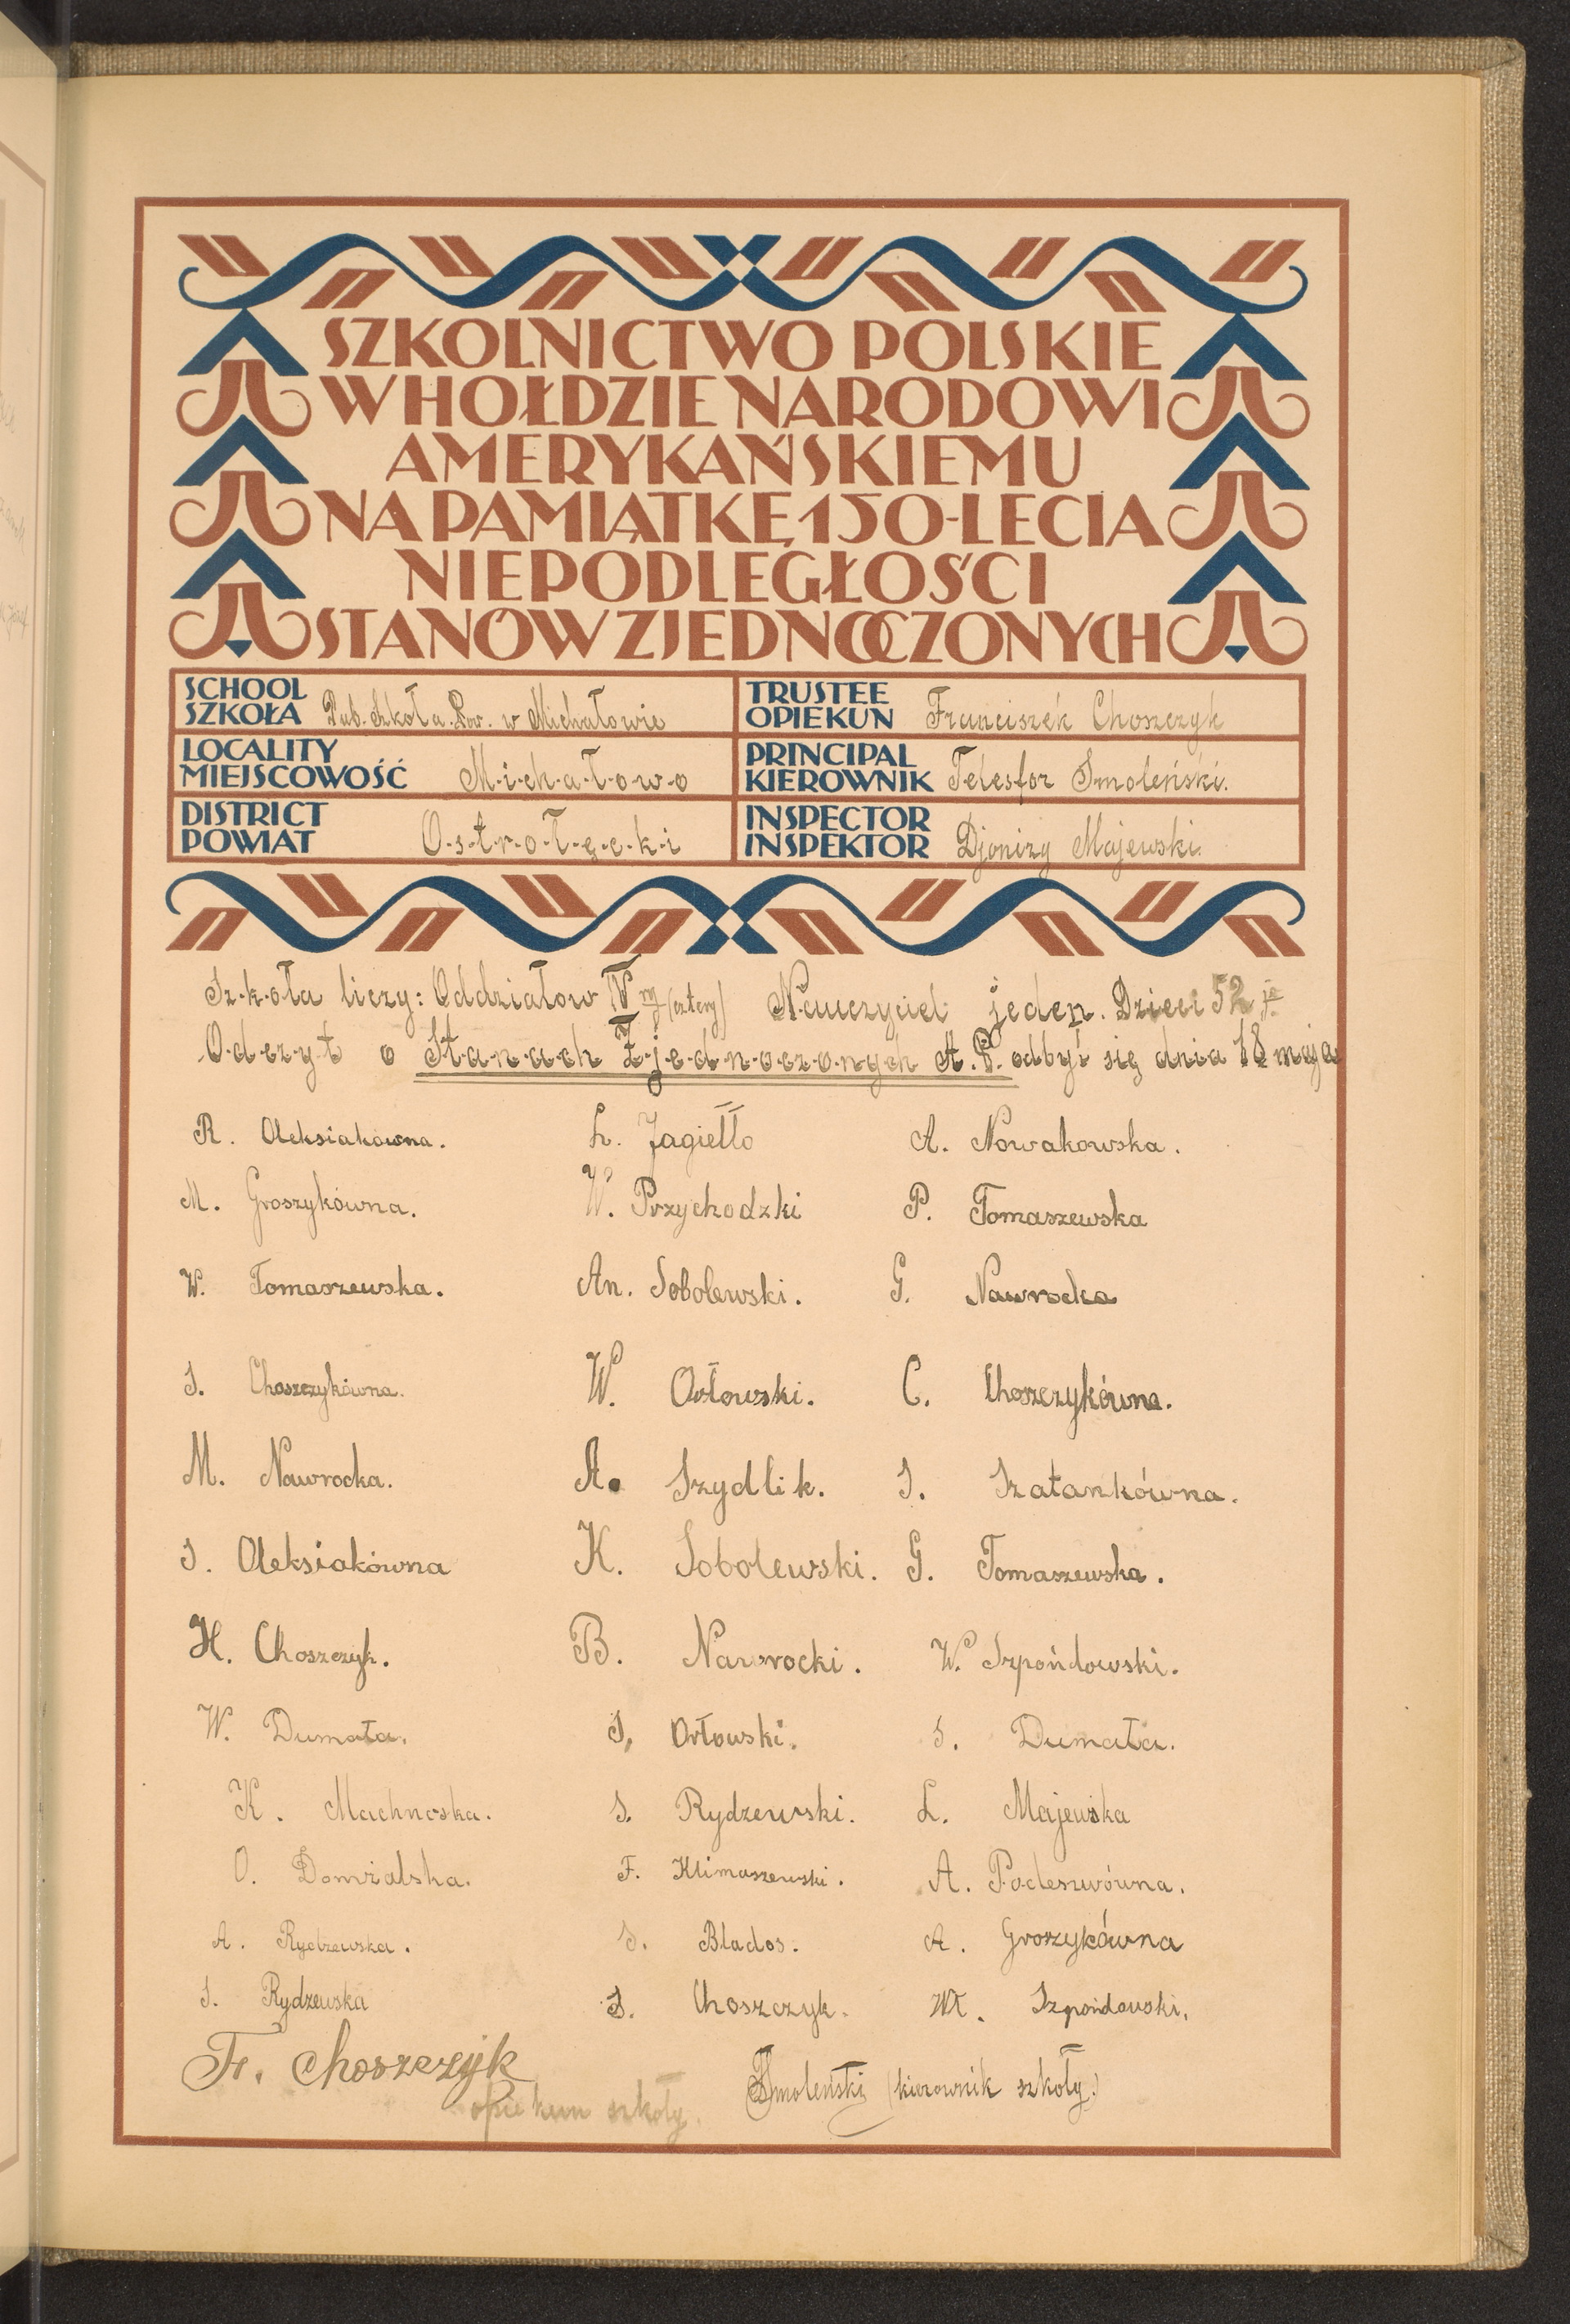 SZKOLNICTWO POLSKIE
W HOŁDZIE NARODOWI
AMERYKAŃSKIEMU
NA PAMIĄTKĘ 150-LECIA
NIEPODLEGŁOŚCI
STANÓW ZJEDNOCZONYCH
SCHOOL
SZKOŁA Pub. Szkoła Pow. w Michałowie
TRUSTEE
OPIEKUN Franciszek Choszczyk
LOCALITY
MIEJSCOWOŚĆ M-i-ch-a-ł-o-w-o
PRINCIPAL
KIEROWNIK Telesfor Smoleński.
DISTRICT
POWIAT O-s-t-r-o-ł-ę-c-k-i
INSPECTOR
INSPEKTOR Djonizy Majewski.
Sz-k-oła liczy: Oddziałow IV ry (cztery) Nauczyciel jeden. Dzieci 52
O-d-cz-y-t o S-t-a-n-a-ch Z-j-e-d-n-o-cz-o-n-y-ch A. P. odbył się dnia 18 maja
R. Oleksiakówna. L. Jagiełło A. Nowakowska.
M. Groszykówna. W. Przychodzki P. Tomaszewska
W. Tomaszewska. An. Sobolewski. G. Nawrocka
S. Choszczykówna. W. Orłowski. C. Choszczykówna.
M. Nawrocka. A. Szydlik. S. Szatankówna.
S. Oleksiakówna K. Sobolewski. G. Tomaszewska.
H. Choszczyk. B. Nawrocki. W. Szpońdowski.
W. Dumała. S. Orłowski. S. Dumała.
K. Machnoska. S. Rydzewski. L. Majewska
O. Domialska. F. Klimaszewski. A. Podeszwówna.
A. Rydzewska. S. Blados. A. Groszykówna
S. Rydzewska S. Choszczyk. Wł. Szpońdowski.
Fr. Choszczyk
opiekun szkoły. Smoleński (kierownik szkoły.)